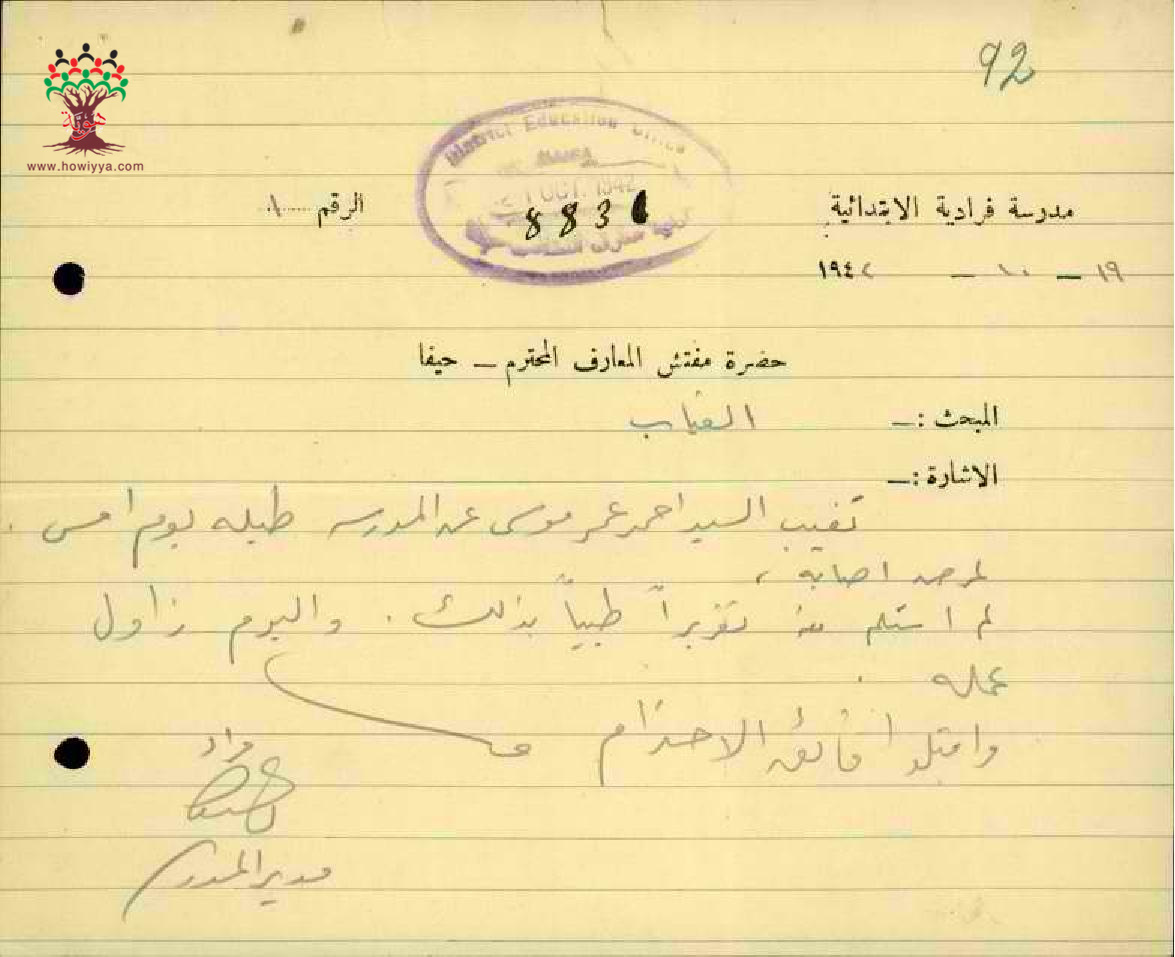 92
هوية
www.howiyya.com
District Education Office
HAIFA
21 OCT. 1942
8831
مدرسة فرادية الابتدائية
الرقم ١
١٩ - ١٠ - ١٩٤٢
حضرة مفتش المعارف المحترم — حيفا
المبحث :— الغياب
الاشارة :—
تغيب السيد احمد عمر موسى عن المدرسه طيله يوم امس .
لمرض اصابه ،
لم استلم منه تقريراً طبياً بذلك . واليوم زاول
عمله .
واقبلوا فائق الاحترام
مدير المدرسة